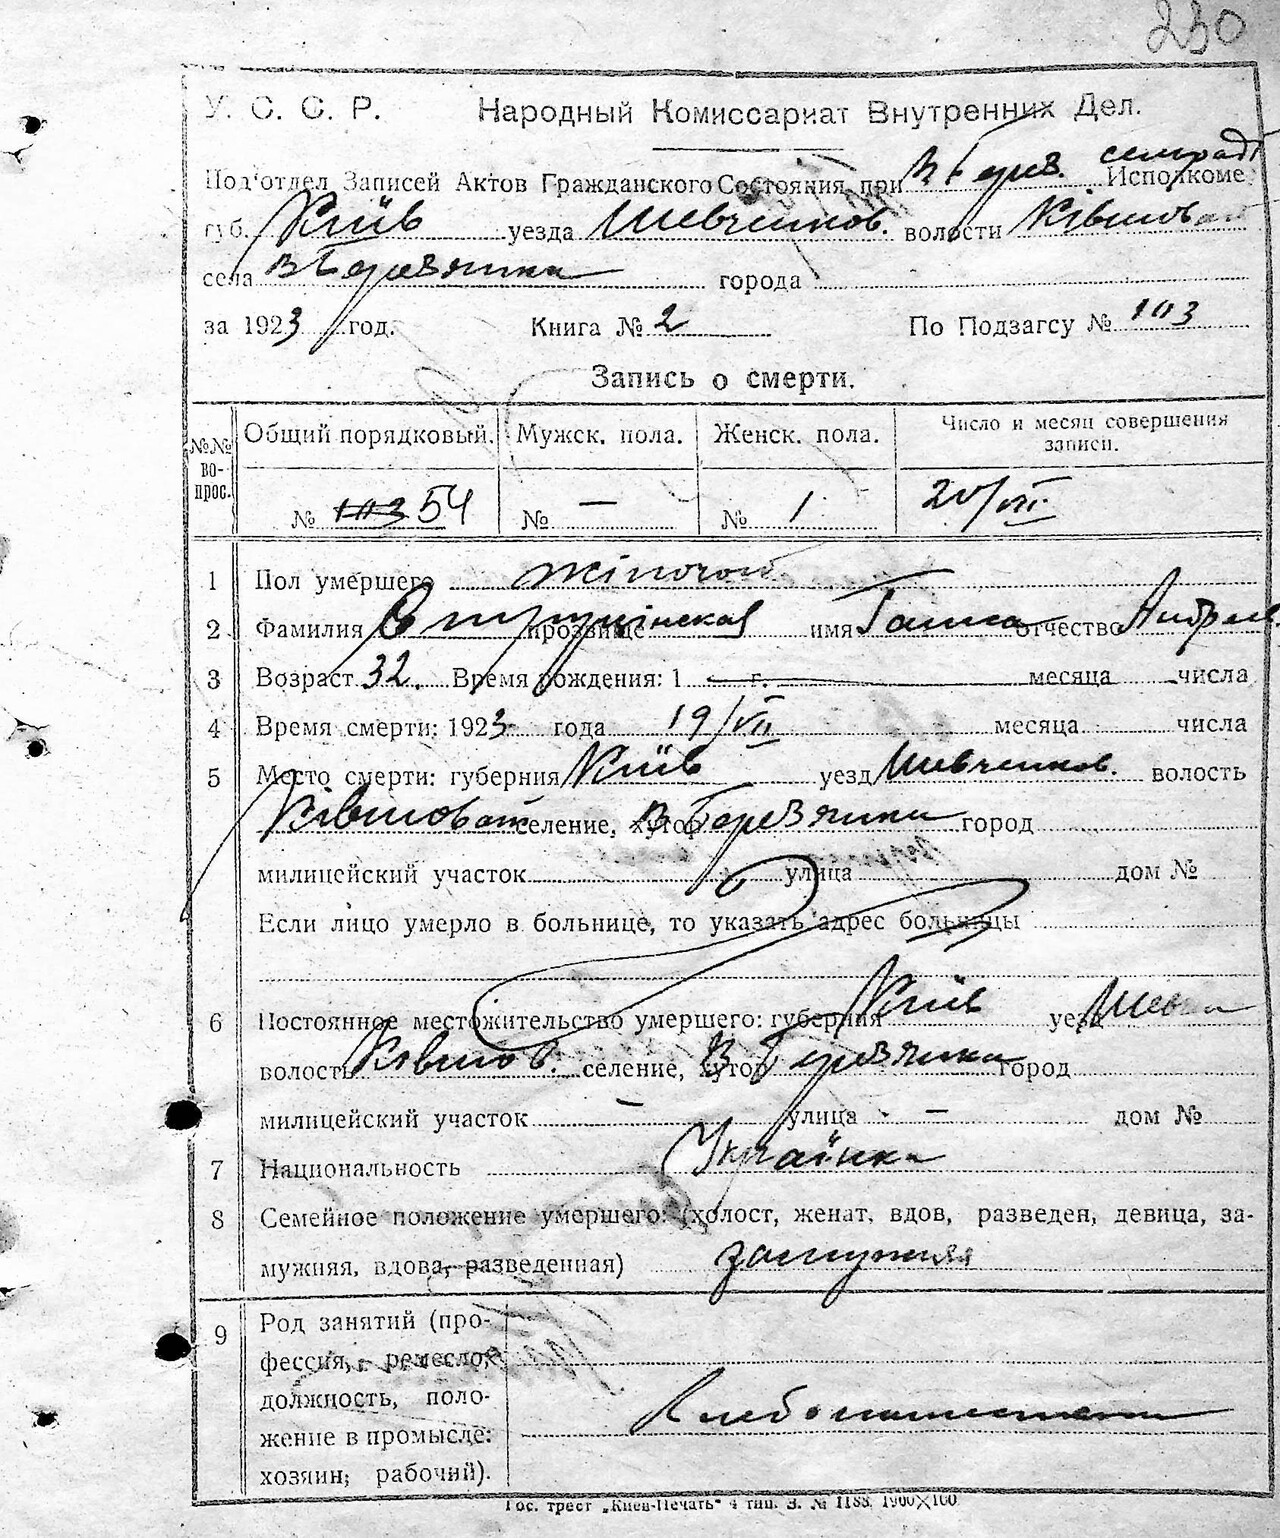 230
У. С. С. Р. Народный Комиссариат Внутренних Дел.
Под'отдел Записей Актов Гражданского Состояния при В Берез. сельраді Исполкоме
губ. Київ уезда Шевченков. волости Ківшоват
села В Березянка города
за 1923 год. Книга № 2 По Подзагсу № 103
Запись о смерти.
№№ вопрос. Общий порядковый. Мужск. пола. Женск. пола. Число и месяц совершения записи.
№ 103 54 № — № 1 20/VII
1 Пол умершего жіночой
2 Фамилия прозвище имя Ганна отчество Андрее.
3 Возраст 32. Время рождения: 1 — г. месяца числа
4 Время смерти: 1923 года 19/VII месяца числа
5 Место смерти: губерния Київ уезд Шевченков. волость
Ківшоват селение, хутор В Березянка город
милицейский участок улица дом №
Если лицо умерло в больнице, то указать адрес больницы
6 Постоянное местожительство умершего: губерния Київ уезд Шевч
волость Ківшов. селение, хутор В Березянка город
милицейский участок — улица — дом №
7 Национальность Українка
8 Семейное положение умершего: (холост, женат, вдов, разведен, девица, за-
мужняя, вдова, разведенная) замужняя
9 Род занятий (про-
фессия, ремесло,
должность, поло-
жение в промысле:
хозяин; рабочий).
Гос. трест „Киев-Печать“ 4 тип. З. № 1188. 1900×100